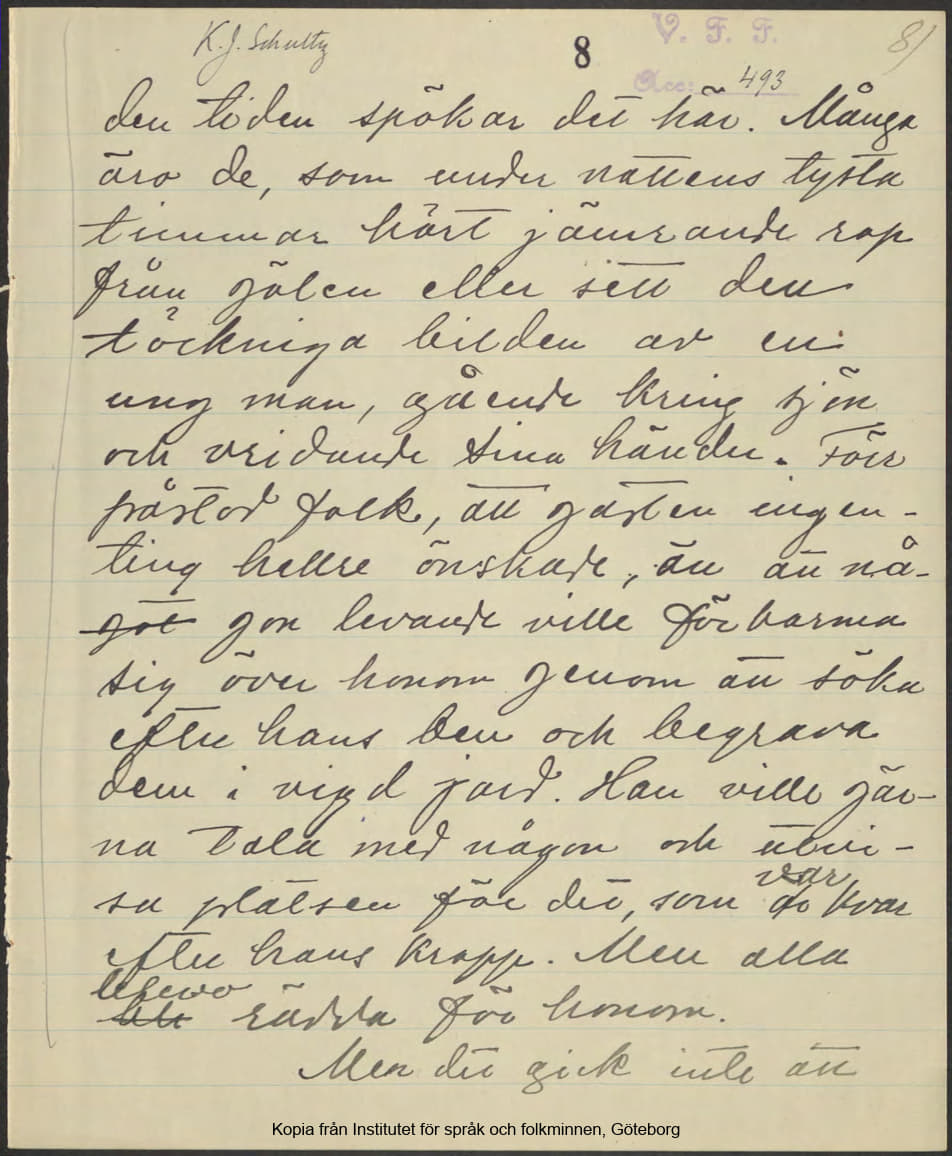 K. J. Schultz
8
V. F. F.
8)
Acc: 493
den tiden spökar det här. Många
äro de, som under nattens tysta
timmar hört jämrande rop
från gölen eller sett den
töckniga bilden av en
ung man, gående kring sjön
och vridande sina händer. Förr
förstod folk, att gasten ingen-
ting hellre önskade, än att nå-
got gon levande ville förbarma
sig över honom genom att söka
efter hans ben och begrava
dem i vigd jord. Han ville gär-
na tala med någon och utvi-
sa platsen för det, som var kvar
efter hans kropp. Men alla
blevo
blir rädda för honom.
Men det gick inte att
Kopia från Institutet för språk och folkminnen, Göteborg